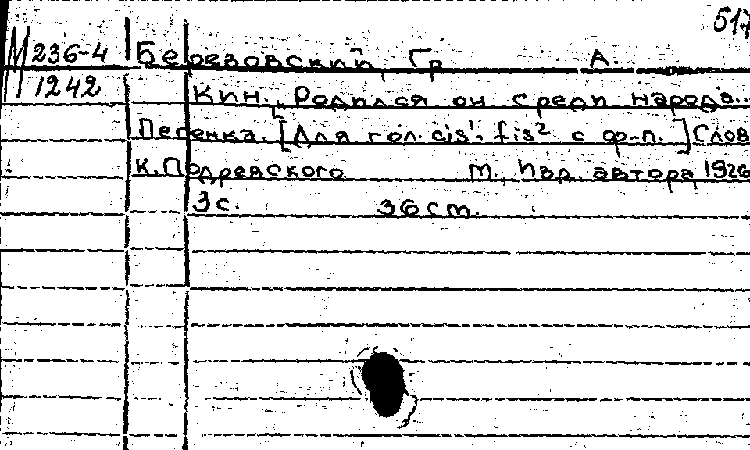 517
М 236-4 Березовский, Гр. А.
1242 Ким. „Родился он среди народа..
Песенка. [Для гол. cis¹-fis² с ф-п.] Слов
К. Подревского М., Изд. автора, 1926
3 с. 36 см.